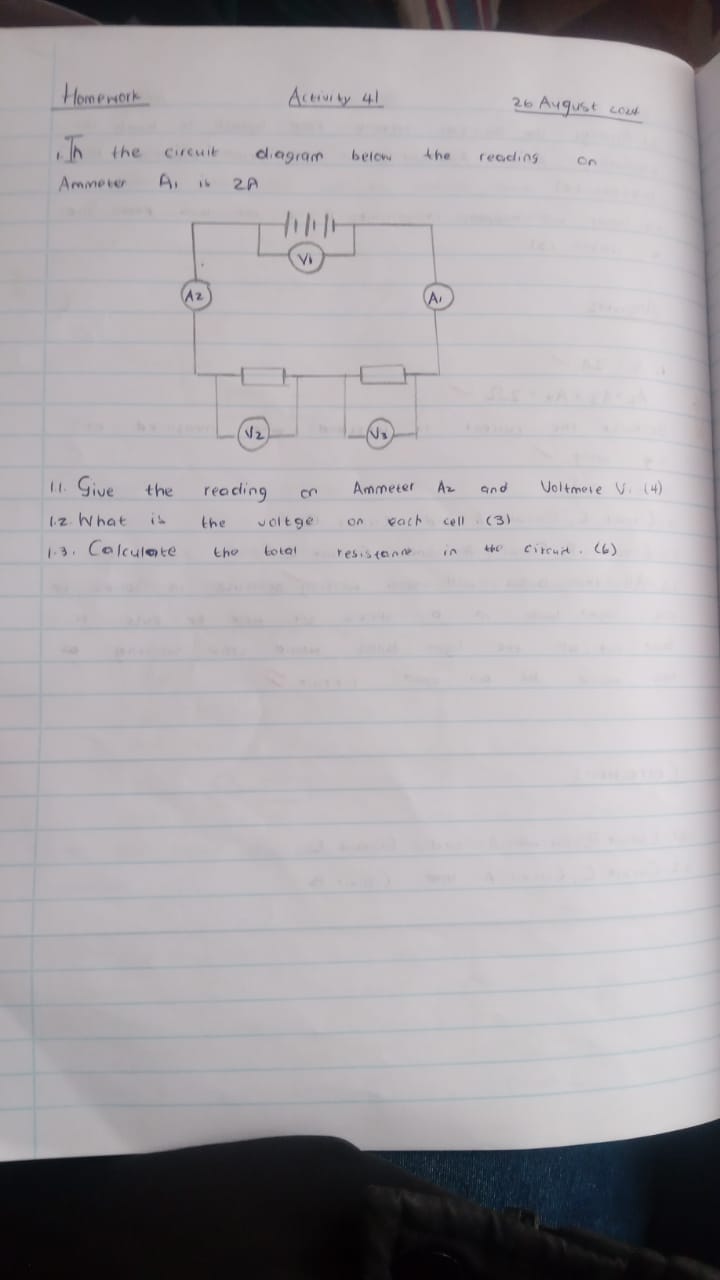 Homework Activity 41 26 August 2024
1. In the circuit diagram below the reading on
Ammeter A1 is 2A
V1
A2 A1
V2 V3
1.1. Give the reading on Ammeter A2 and Voltmere V1 (4)
1.2. What is the voltge on each cell. (3)
1.3. Calculate the total resistanne in the circuit. (6)